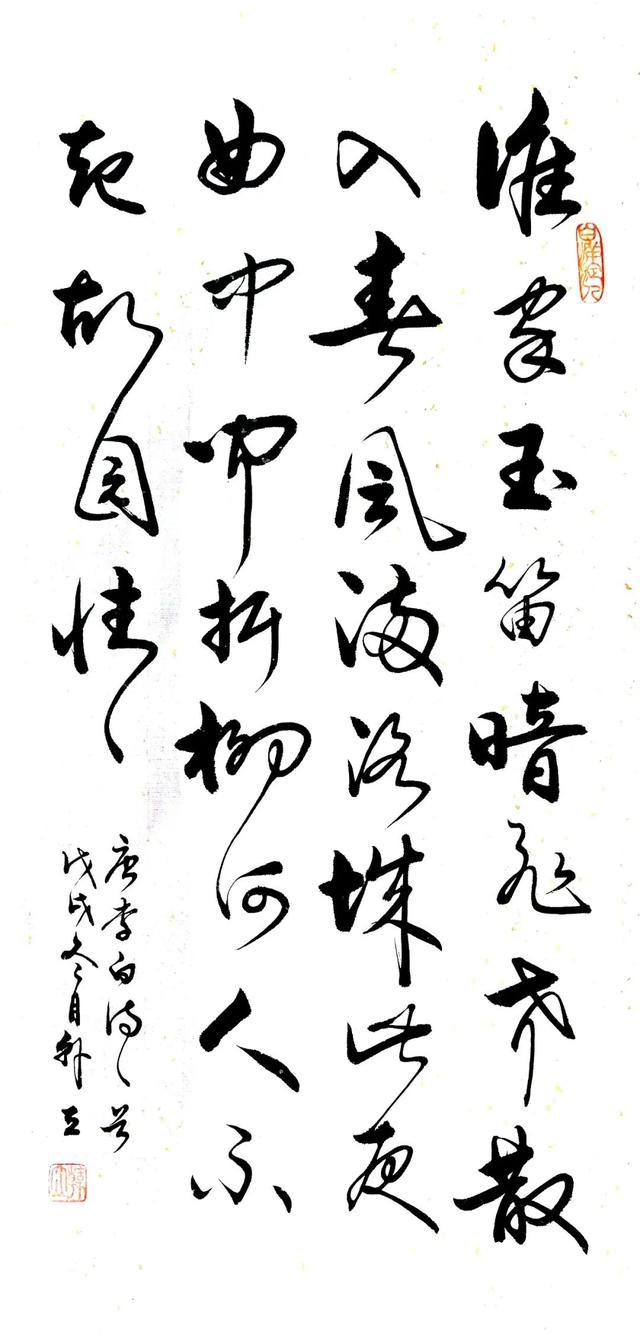 谁家玉笛暗飞声散
入春风满洛城此夜
曲中闻折柳何人不
起故园情
唐李白诗一首
戊戌冬月
白洋淀人